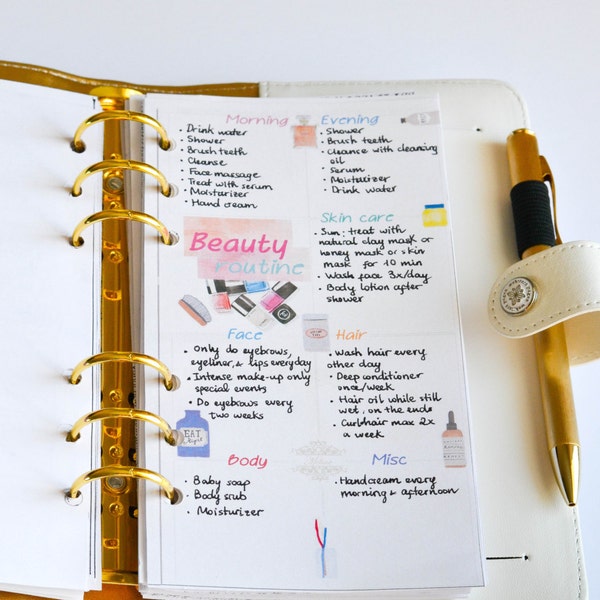 Morning
• Drink water
• Shower
• Brush teeth
• Cleanse
• Face massage
• Treat with serum
• Moisturizer
• Hand cream
Evening
• Shower
• Brush teeth
• Cleanse with cleansing
oil
• Serum
• Moisturizer
• Drink water
Beauty
routine
Skin care
• Sun: treat with
natural clay mask or
honey mask or skin
mask for 10 min
• Wash face 3x/day
• Body lotion after
shower
Face
• Only do eyebrows,
eyeliner, & lips everyday
• Intense make-up only
special events
• Do eyebrows every
two weeks
Hair
• Wash hair every
other day
• Deep conditioner
once/week
• Hair oil while still
wet, on the ends
• Curl hair max 2x
a week
EAT
Body
• Baby soap
• Body scrub
• Moisturizer
Misc
• Handcream every
morning & afternoon